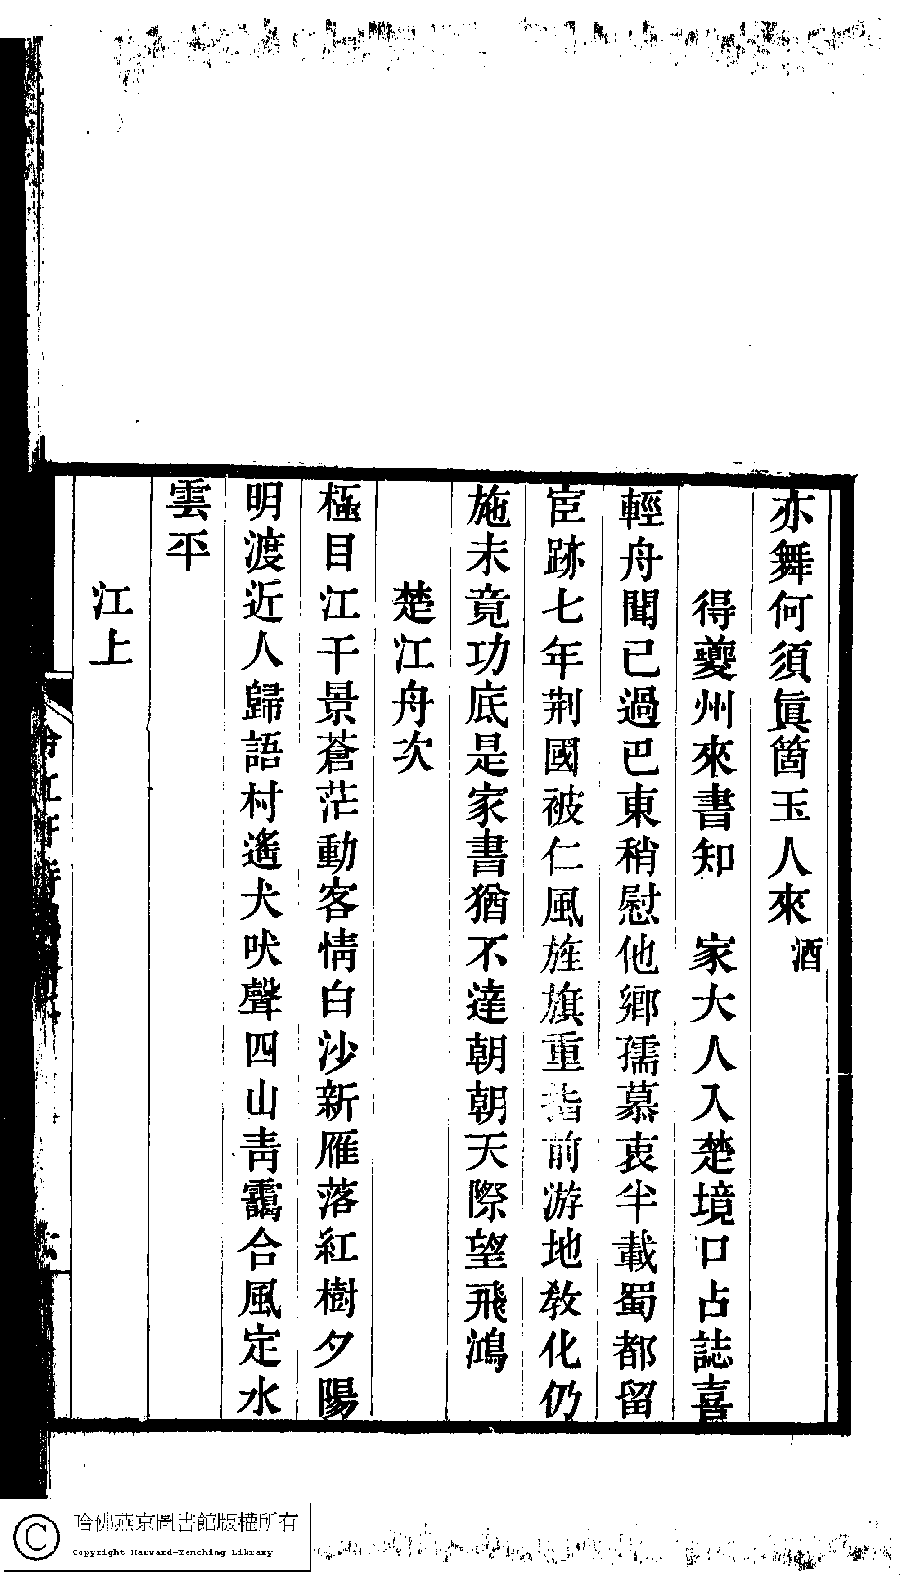 亦舞何須眞箇玉人來酒
得夔州來書知　家大人入楚境口占誌喜
輕舟聞已過巴東稍慰他鄉孺慕衷半載蜀都留
宦跡七年荆國被仁風旌旗重指前游地敎化仍
施未竟功底是家書猶不達朝朝天際望飛鴻
楚江舟次
極目江干景蒼茫動客情白沙新雁落紅樹夕陽
明渡近人歸語村遙犬吠聲四山靑靄合風定水
雲平
江上
哈佛燕京圖書館版權所有
Copyright Harvard-Yenching Library